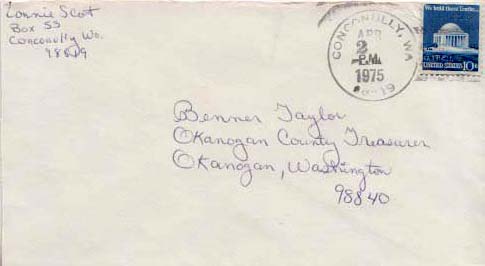 Lonnie Scot
Box 53
Conconully Wa.
CONCONULLY, WA
APR
2
P.M.
1975
We hold these Truths...
UNITED STATES 10c
Benner Taylor
Okanogan County Treasurer
Okanogan, Washington
98840